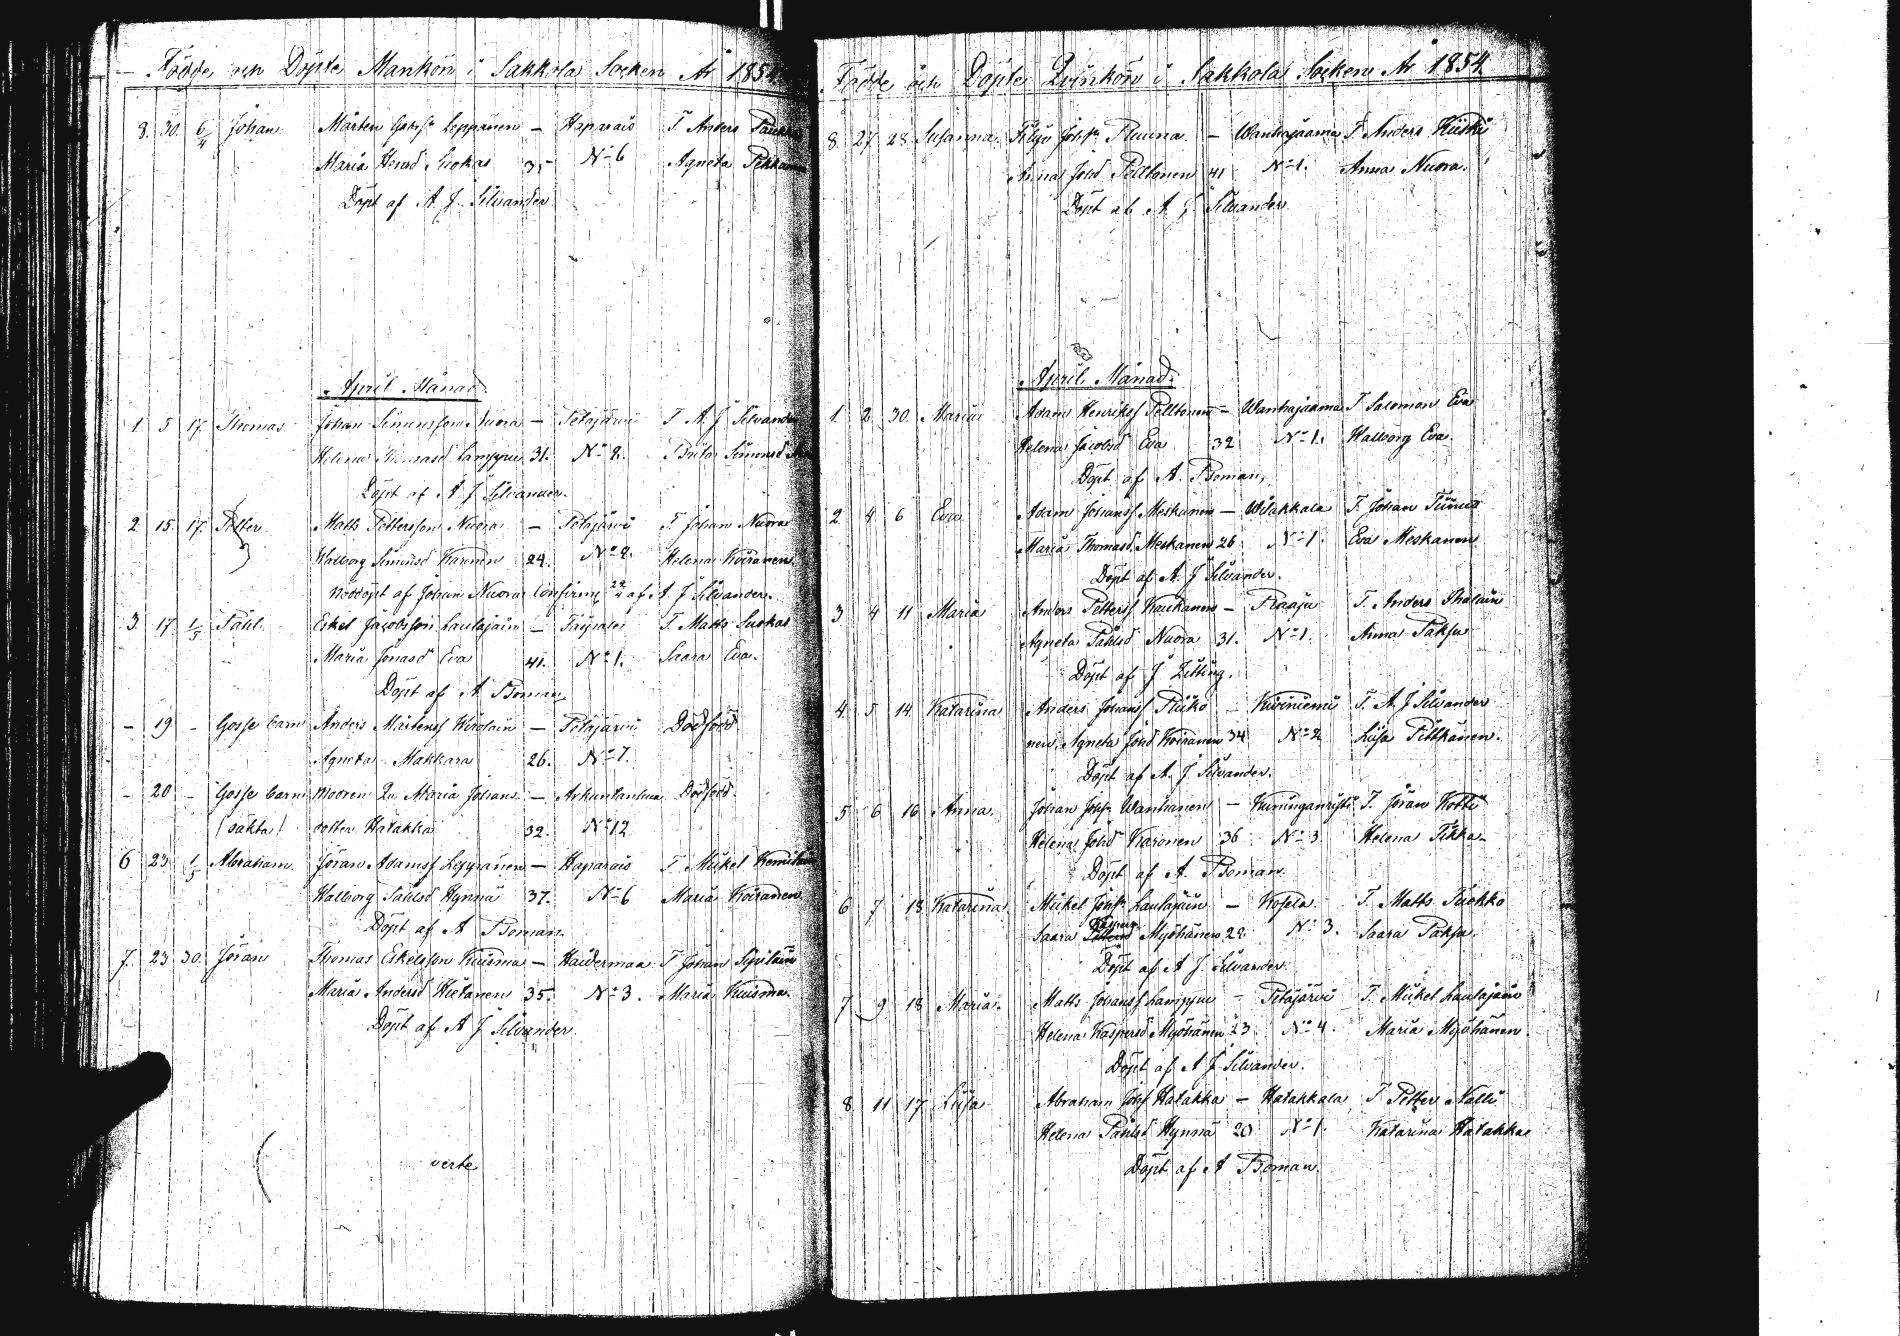 Födde och Döpte Mankön i Sakkola Socken År 1854
8. 30. 6/4 Johan Mårten Leppänen – Haparais T. Anders
Maria Suokas 35 No 6 Agneta Pekkanen
Döpt af A J Silvander
April Månad
1. 5 17. Thomas Johan Simonsson Nuora – Petäjärvi T A J Silvander
Helena Thomasd Lamppu 31. No 2. Brita Simonsd
Döpt af A J Silvander.
2 15. 17. Petter Matts Pettersson Nuora – Petäjärvi T Johan Nuora
Walborg Simonsd Karonen 24. No 2. Helena Koiranen
Nöddöpt af Johan Nuora Confirm af A. J Silvander.
3. 17 1/5 Påhl Eskel Jacobsson Laulajain – Taipale T Matts Suokas
Maria Jonasd Eva 41. No 1. Saara Eva.
Döpt af A Boman
– 19 – Gosse barn Anders Mårtenss Wirolain – Petäjärvi Dödfödd
Agneta Makkara 26. No 7.
– 20 – Gosse barn Mooren Qu. Maria Johans – Arkuntanhua Dödfödd.
(oäkta) dotter Hatakka 32. No 12
6 23 1/5 Abraham Jöran Adamss Leppänen – Haparais T Mickel
Walborg Påhlsd Hynnä 37. No 6 Maria Koiranen
Döpt af A Boman.
7. 23 30. Jöran Thomas Eskelsson Kuisma – Haidermaa T Johan
Maria Andersd Hietanen 35. No 3. Maria Kuisma.
Döpt af A J Silvander
verte
Födde och Döpte Qvinkön i Sakkola Socken År 1854
8. 27 28 Susanna Filip Johs. Ruuna – Wanhajaama T Anders Kiiski
Anna Johsd Pelttonen 41 No 1. Anna Nuora.
Döpt af A J Silvander
April Månad.
1. 2 30. Maria Adam Henrikss Pelttonen – Wanhajaama T Salomon Eva
Helena Jacobsd Eva 32 No 1. Walborg Eva.
Döpt af A. Boman.
2. 4 6 Eva Adam Johanss Meskanen – Wilakkala T. Johan
Maria Thomasd Meskanen 26 No 1 Eva Meskanen
Döpt af A. J Silvander.
3. 4 11 Maria Anders Petterss Kaukanen – Raaju T. Anders
Agneta Påhlsd Nuora 31. No 1. Anna Paksu
Döpt af J Zitting.
4. 5 14. Katarina Anders Johans – Kiviniemi T. A. J Silvander
nen, Agneta Johsd Koiranen 34 No 2 Liisa Pittkänen.
Döpt af A. J Silvander.
5 6 16 Anna Johan Johs. Wanhanen – T. Jöran Kotti
Helena Johsd Karonen 36 No 3 Helena Tikka
Döpt af A Boman
6 7 18 Katarina Mickel Johs. Laulajain – Kosela T. Matts
Saara Kaspersd Myöhänen 28 No 3. Saara Paksu.
Döpt af A J Silvander.
7 9 18 Maria. Matts Johanss Lamppu – Petäjärvi T. Mickel Laulajain
Helena Kaspersd Myöhänen 23 No 4. Maria Myöhänen.
Döpt af A J Silvander.
8. 11 17 Liisa Abraham Johss Hatakka – Hatakkala T Petter Nalli
Helena Påhlsd Hynnä 20 No 1 Katarina Hatakka
Döpt af A Boman.